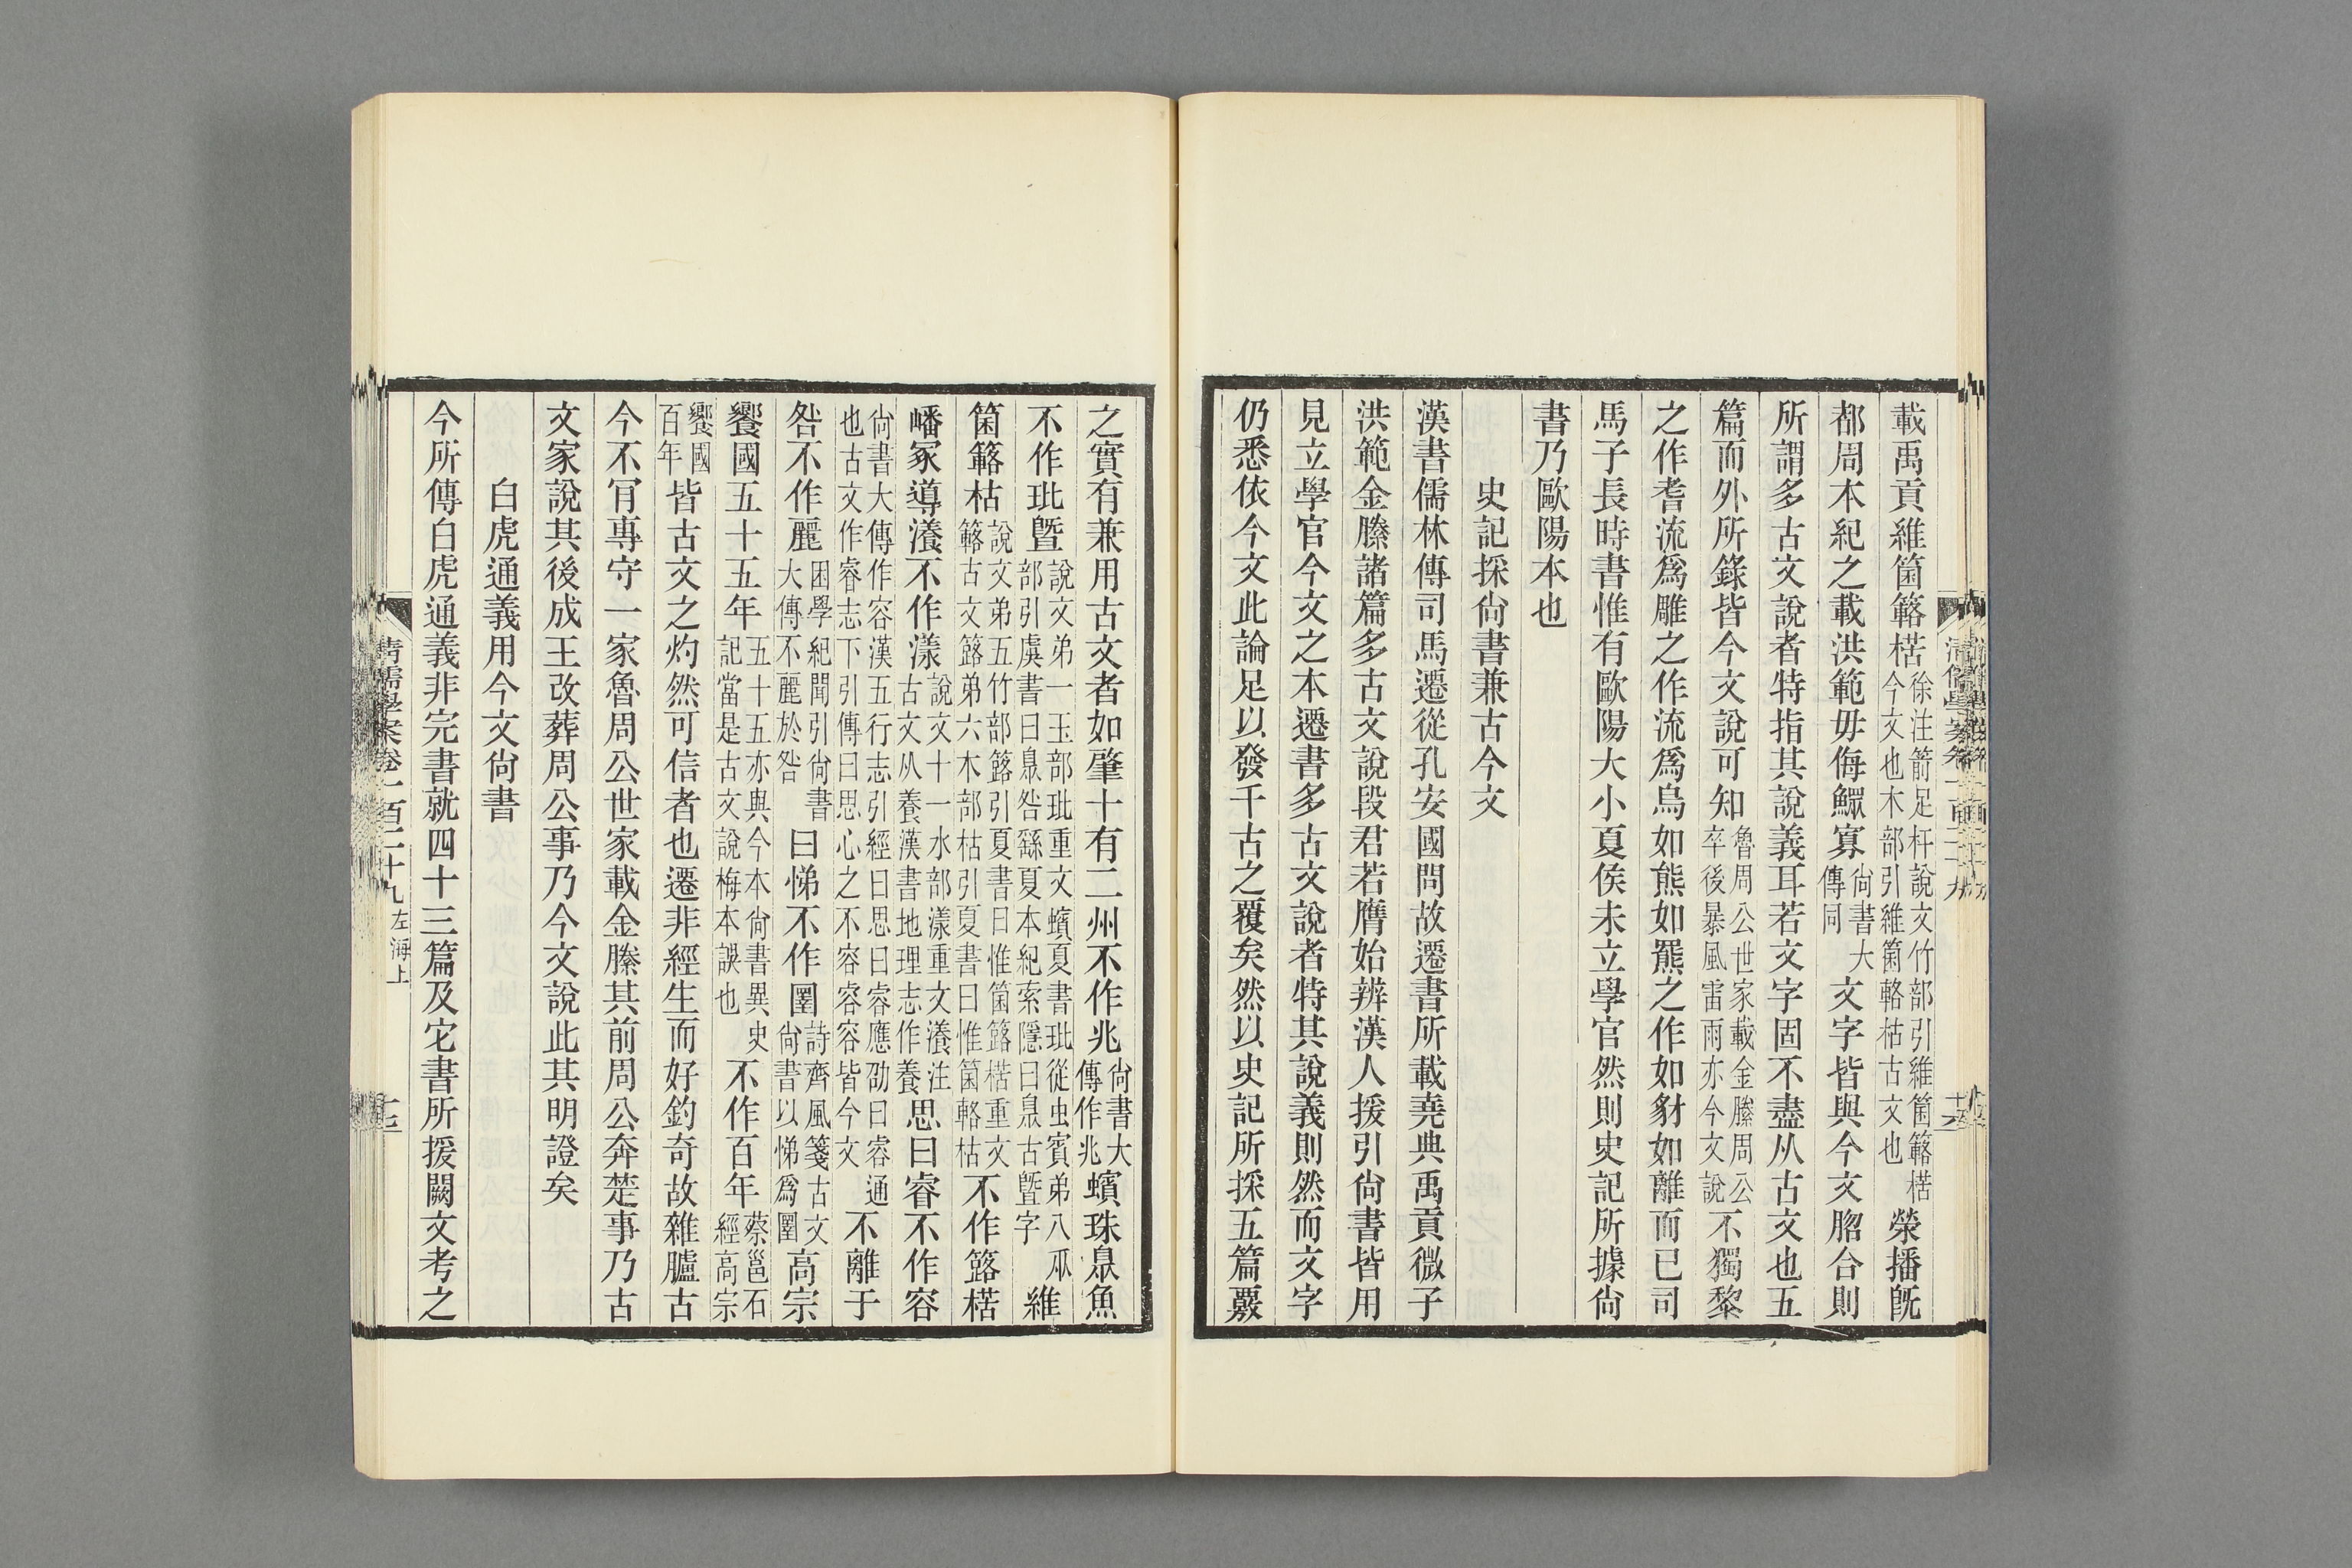 載禹貢維箘簵楛徐注箭足杆說文竹部引維箘簵楛今文也木部引維箘輅枯古文也榮播旣
都周本紀之載洪範毋侮鰥寡尙書大傳同文字皆與今文脗合則
所謂多古文說者特指其說義耳若文字固不盡从古文也五
篇而外所錄皆今文說可知魯周公世家載金縢周公卒後暴風雷雨亦今文說不獨黎
之作耆流爲雕之作流爲烏如熊如羆之作如豺如離而已司
馬子長時書惟有歐陽大小夏侯未立學官然則史記所據尙
書乃歐陽本也
史記採尙書兼古今文
漢書儒林傳司馬遷從孔安國問故遷書所載堯典禹貢微子
洪範金縢諸篇多古文說段君若膺始辨漢人援引尙書皆用
見立學官今文之本遷書多古文說者特其說義則然而文字
仍悉依今文此論足以發千古之覆矣然以史記所採五篇覈
之實有兼用古文者如肇十有二州不作兆尙書大傳作兆蠙珠臮魚
不作玭曁說文弟一玉部玭重文蠙夏書玭從虫賓弟八㐺部引虞書曰臮咎繇夏本紀索隱曰臮古曁字維
箘簵枯說文弟五竹部簬引夏書曰惟箘簬楛重文簵古文簬弟六木部枯引夏書曰惟箘輅枯不作簬楛
嶓冢導瀁不作漾說文十一水部漾重文瀁注古文从養漢書地理志作養思曰睿不作容
尙書大傳作容漢五行志引經曰思曰睿應劭曰睿通也古文作睿志下引傳曰思心之不容容容皆今文不離于
咎不作麗困學紀聞引尙書大傳不麗於咎曰悌不作圛詩齊風箋古文尙書以悌爲圛高宗
饗國五十五年五十五亦與今本尙書異史記當是古文說梅本誤也不作百年蔡邕石經高宗
饗國百年皆古文之灼然可信者也遷非經生而好釣奇故雜臚古
今不肎專守一家魯周公世家載金縢其前周公奔楚事乃古
文家說其後成王改葬周公事乃今文說此其明證矣
白虎通義用今文尙書
今所傳白虎通義非完書就四十三篇及它書所援闕文考之
淸儒學案卷一百二十九 左海上